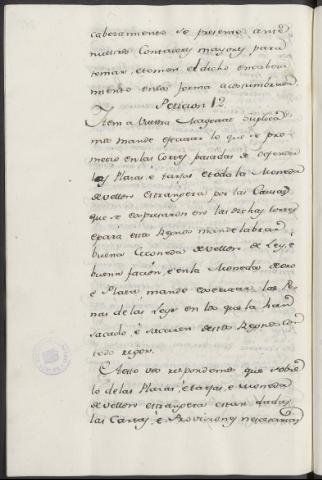 cabezamiento se presente ante
nuestros Contadores mayores para
tomar, e tomen el dicho encabeza
miento en la forma acostumbrada.
Peticion 12.
Item a Vuestra Magestad suplica
mos mande efectuar lo que se pro
metio en las Cortes pasadas de defender
las Placas e tarjas, e toda la Moneda
de vellon estrangera por las Causas
que se expresaron en las dichas Cortes
e para estos Reynos mande labrar
buena Moneda de vellon de Ley, e
buena facion, e en la Moneda de oro
e Plata mande executar las Pe
nas de las Leyes en los que la han
sacado, e sacaren de estos Reynos con
todo rigor.
A esto vos respondemos que sobre
lo de las Placas, e tarjas, e moneda
de vellon estrangera estan dadas
las Cartas, e Provisiones necesarias